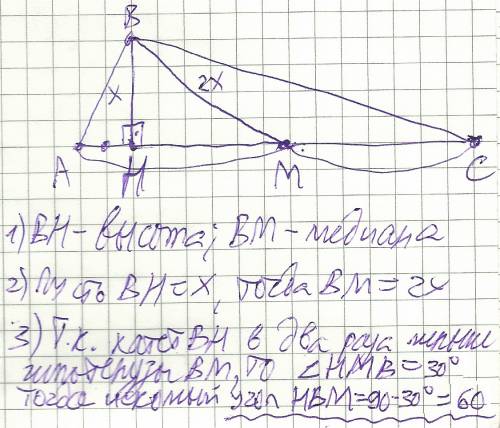 B
x
2x
A
H
M
C
1) BH - высота; BM - медиана
2) Пусть BH = x, тогда BM = 2x
3) Т.к. катет BH в два раза меньше
гипотенузы BM, то ∠HMB = 30°
Тогда искомый угол HBM = 90 - 30° = 60